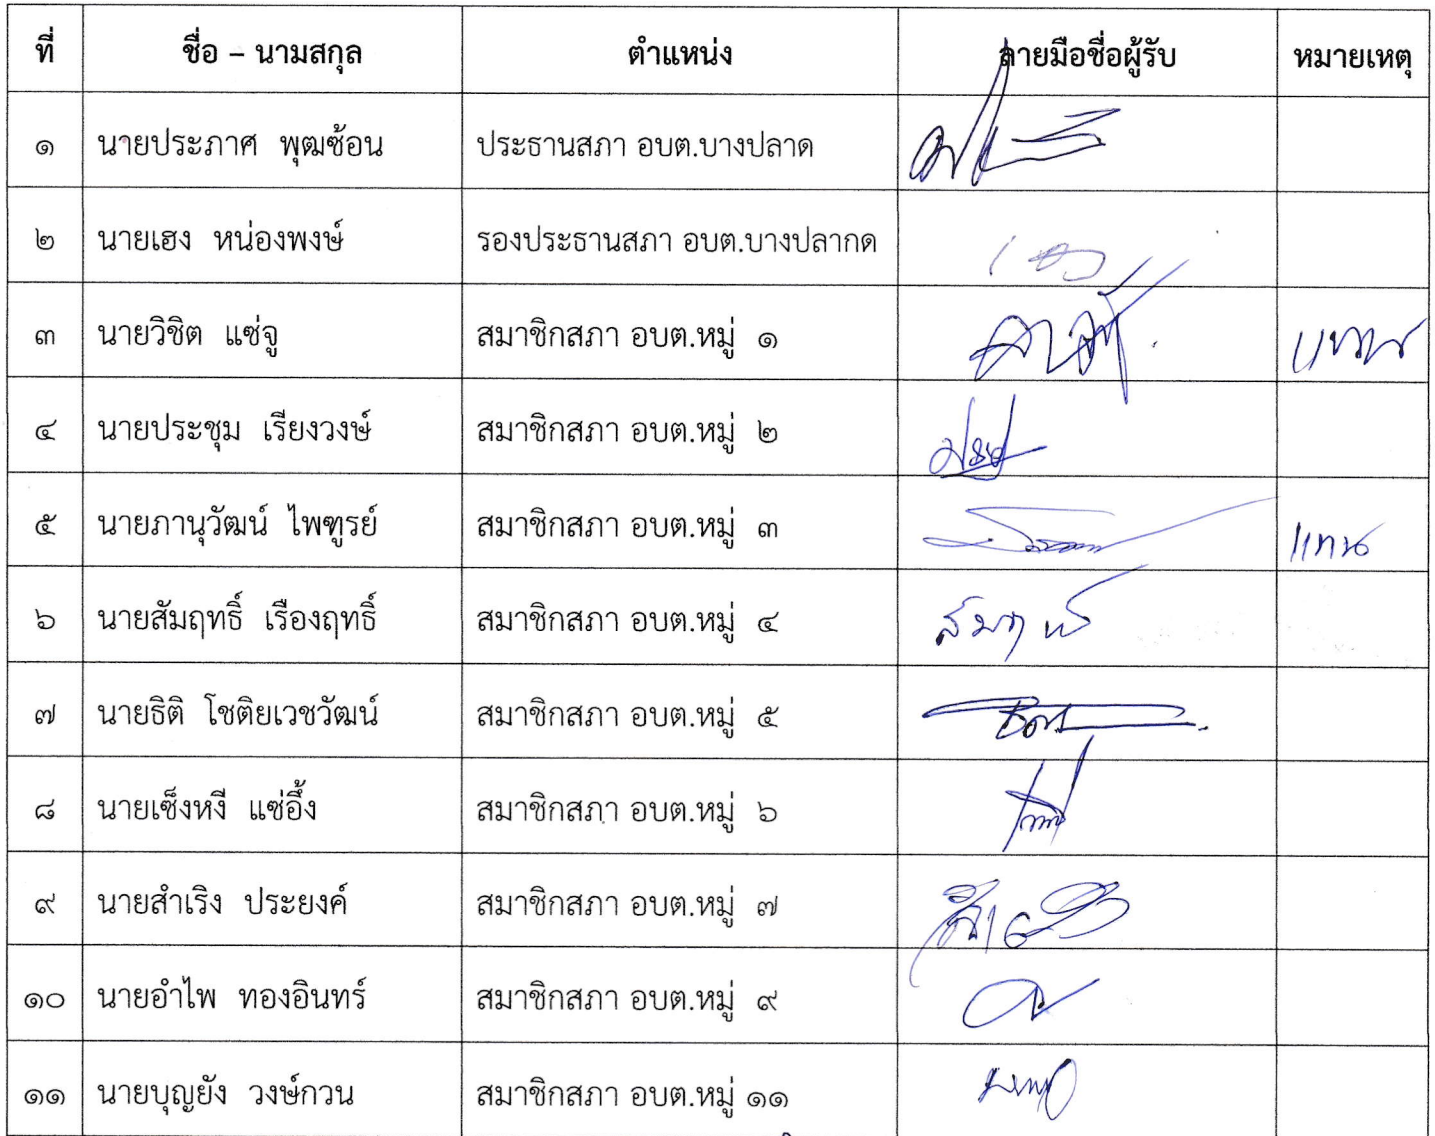 ที่ ชื่อ – นามสกุล ตำแหน่ง ลายมือชื่อผู้รับ หมายเหตุ
๑ นายประภาศ พุฒซ้อน ประธานสภา อบต.บางปลาด
๒ นายเฮง หน่องพงษ์ รองประธานสภา อบต.บางปลากด เฮง
๓ นายวิชิต แซ่จู สมาชิกสภา อบต.หมู่ ๑ แทน
๔ นายประชุม เรียงวงษ์ สมาชิกสภา อบต.หมู่ ๒
๕ นายภานุวัฒน์ ไพฑูรย์ สมาชิกสภา อบต.หมู่ ๓ แทน
๖ นายสัมฤทธิ์ เรืองฤทธิ์ สมาชิกสภา อบต.หมู่ ๔
๗ นายธิติ โชติยเวชวัฒน์ สมาชิกสภา อบต.หมู่ ๕
๘ นายเซ็งหงี แซ่อึ้ง สมาชิกสภา อบต.หมู่ ๖
๙ นายสำเริง ประยงค์ สมาชิกสภา อบต.หมู่ ๗
๑๐ นายอำไพ ทองอินทร์ สมาชิกสภา อบต.หมู่ ๙
๑๑ นายบุญยัง วงษ์กวน สมาชิกสภา อบต.หมู่ ๑๑